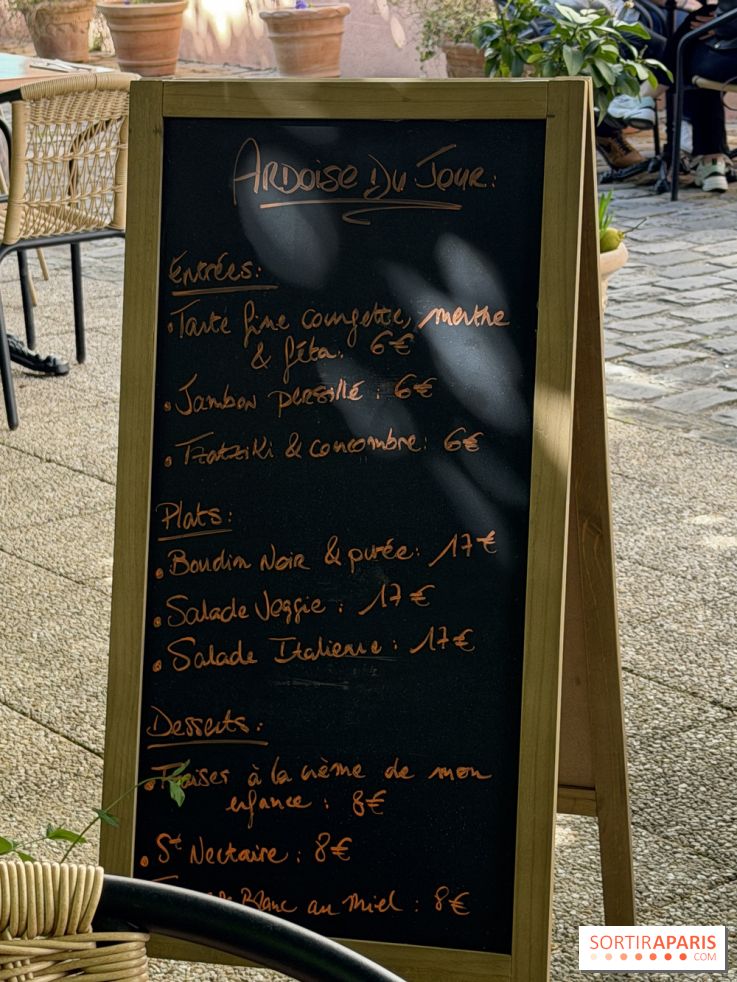 Ardoise du Jour:
Entrées:
• Tarte fine courgette, menthe
& féta: 6€
• Jambon persillé : 6€
• Tzatziki & concombre: 6€
Plats:
• Boudin Noir & purée: 17€
• Salade Veggie : 17€
• Salade Italienne : 17€
Desserts:
• Fraises à la crème de mon
enfance : 8€
• St Nectaire : 8€
Blanc au Miel : 8€
SORTIRAPARIS
.COM